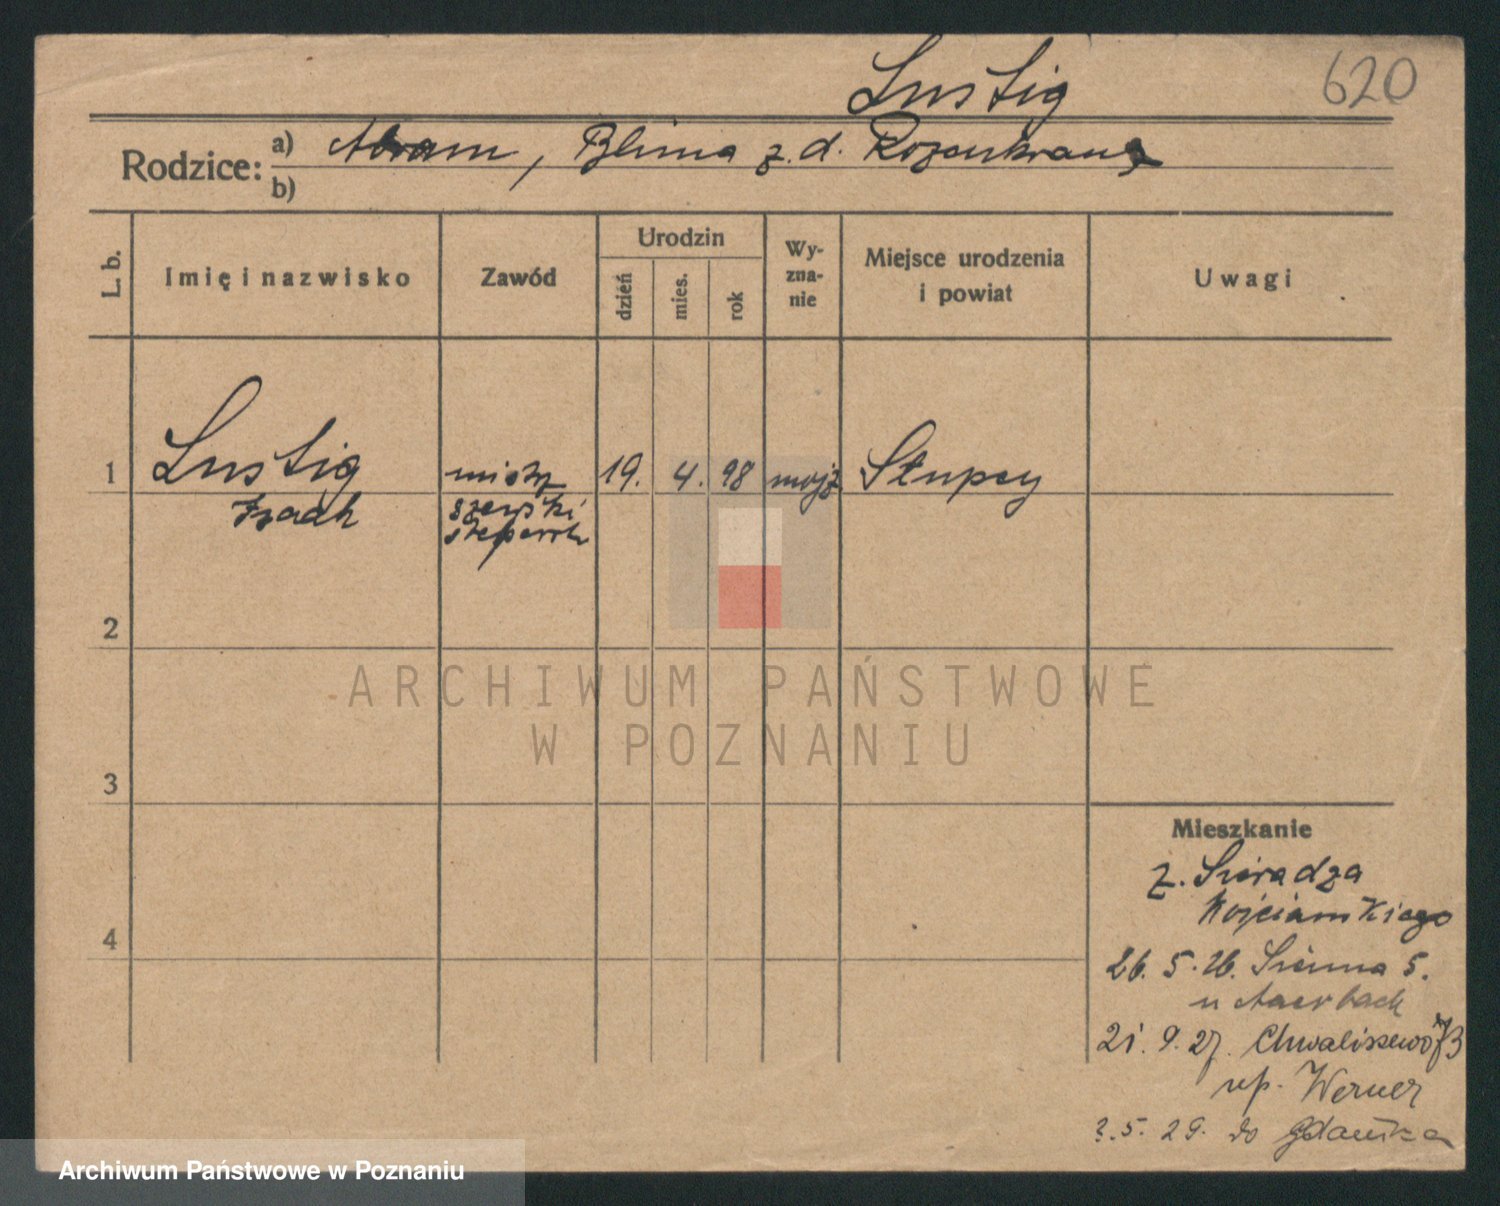 Lustig
620
Rodzice:
a) Abram, Blima z. d. Rozenkranz
b)
L. b.
Imię i nazwisko
Zawód
Urodzin
dzień
mies.
rok
Wy-
zna-
nie
Miejsce urodzenia
i powiat
Uwagi
1
Lustig
Izaak
mistrz
szewski
19. 4. 98
mojż
Słupcy
2
3
4
ARCHIWUM PAŃSTWOWE
W POZNANIU
Mieszkanie
z. Sieradza
26. 5. 26. Sienna 5.
u Auerbach
21. 9. 27. Chwaliszewo 73
Werner
2. 5. 29. do Gdańska
Archiwum Państwowe w Poznaniu